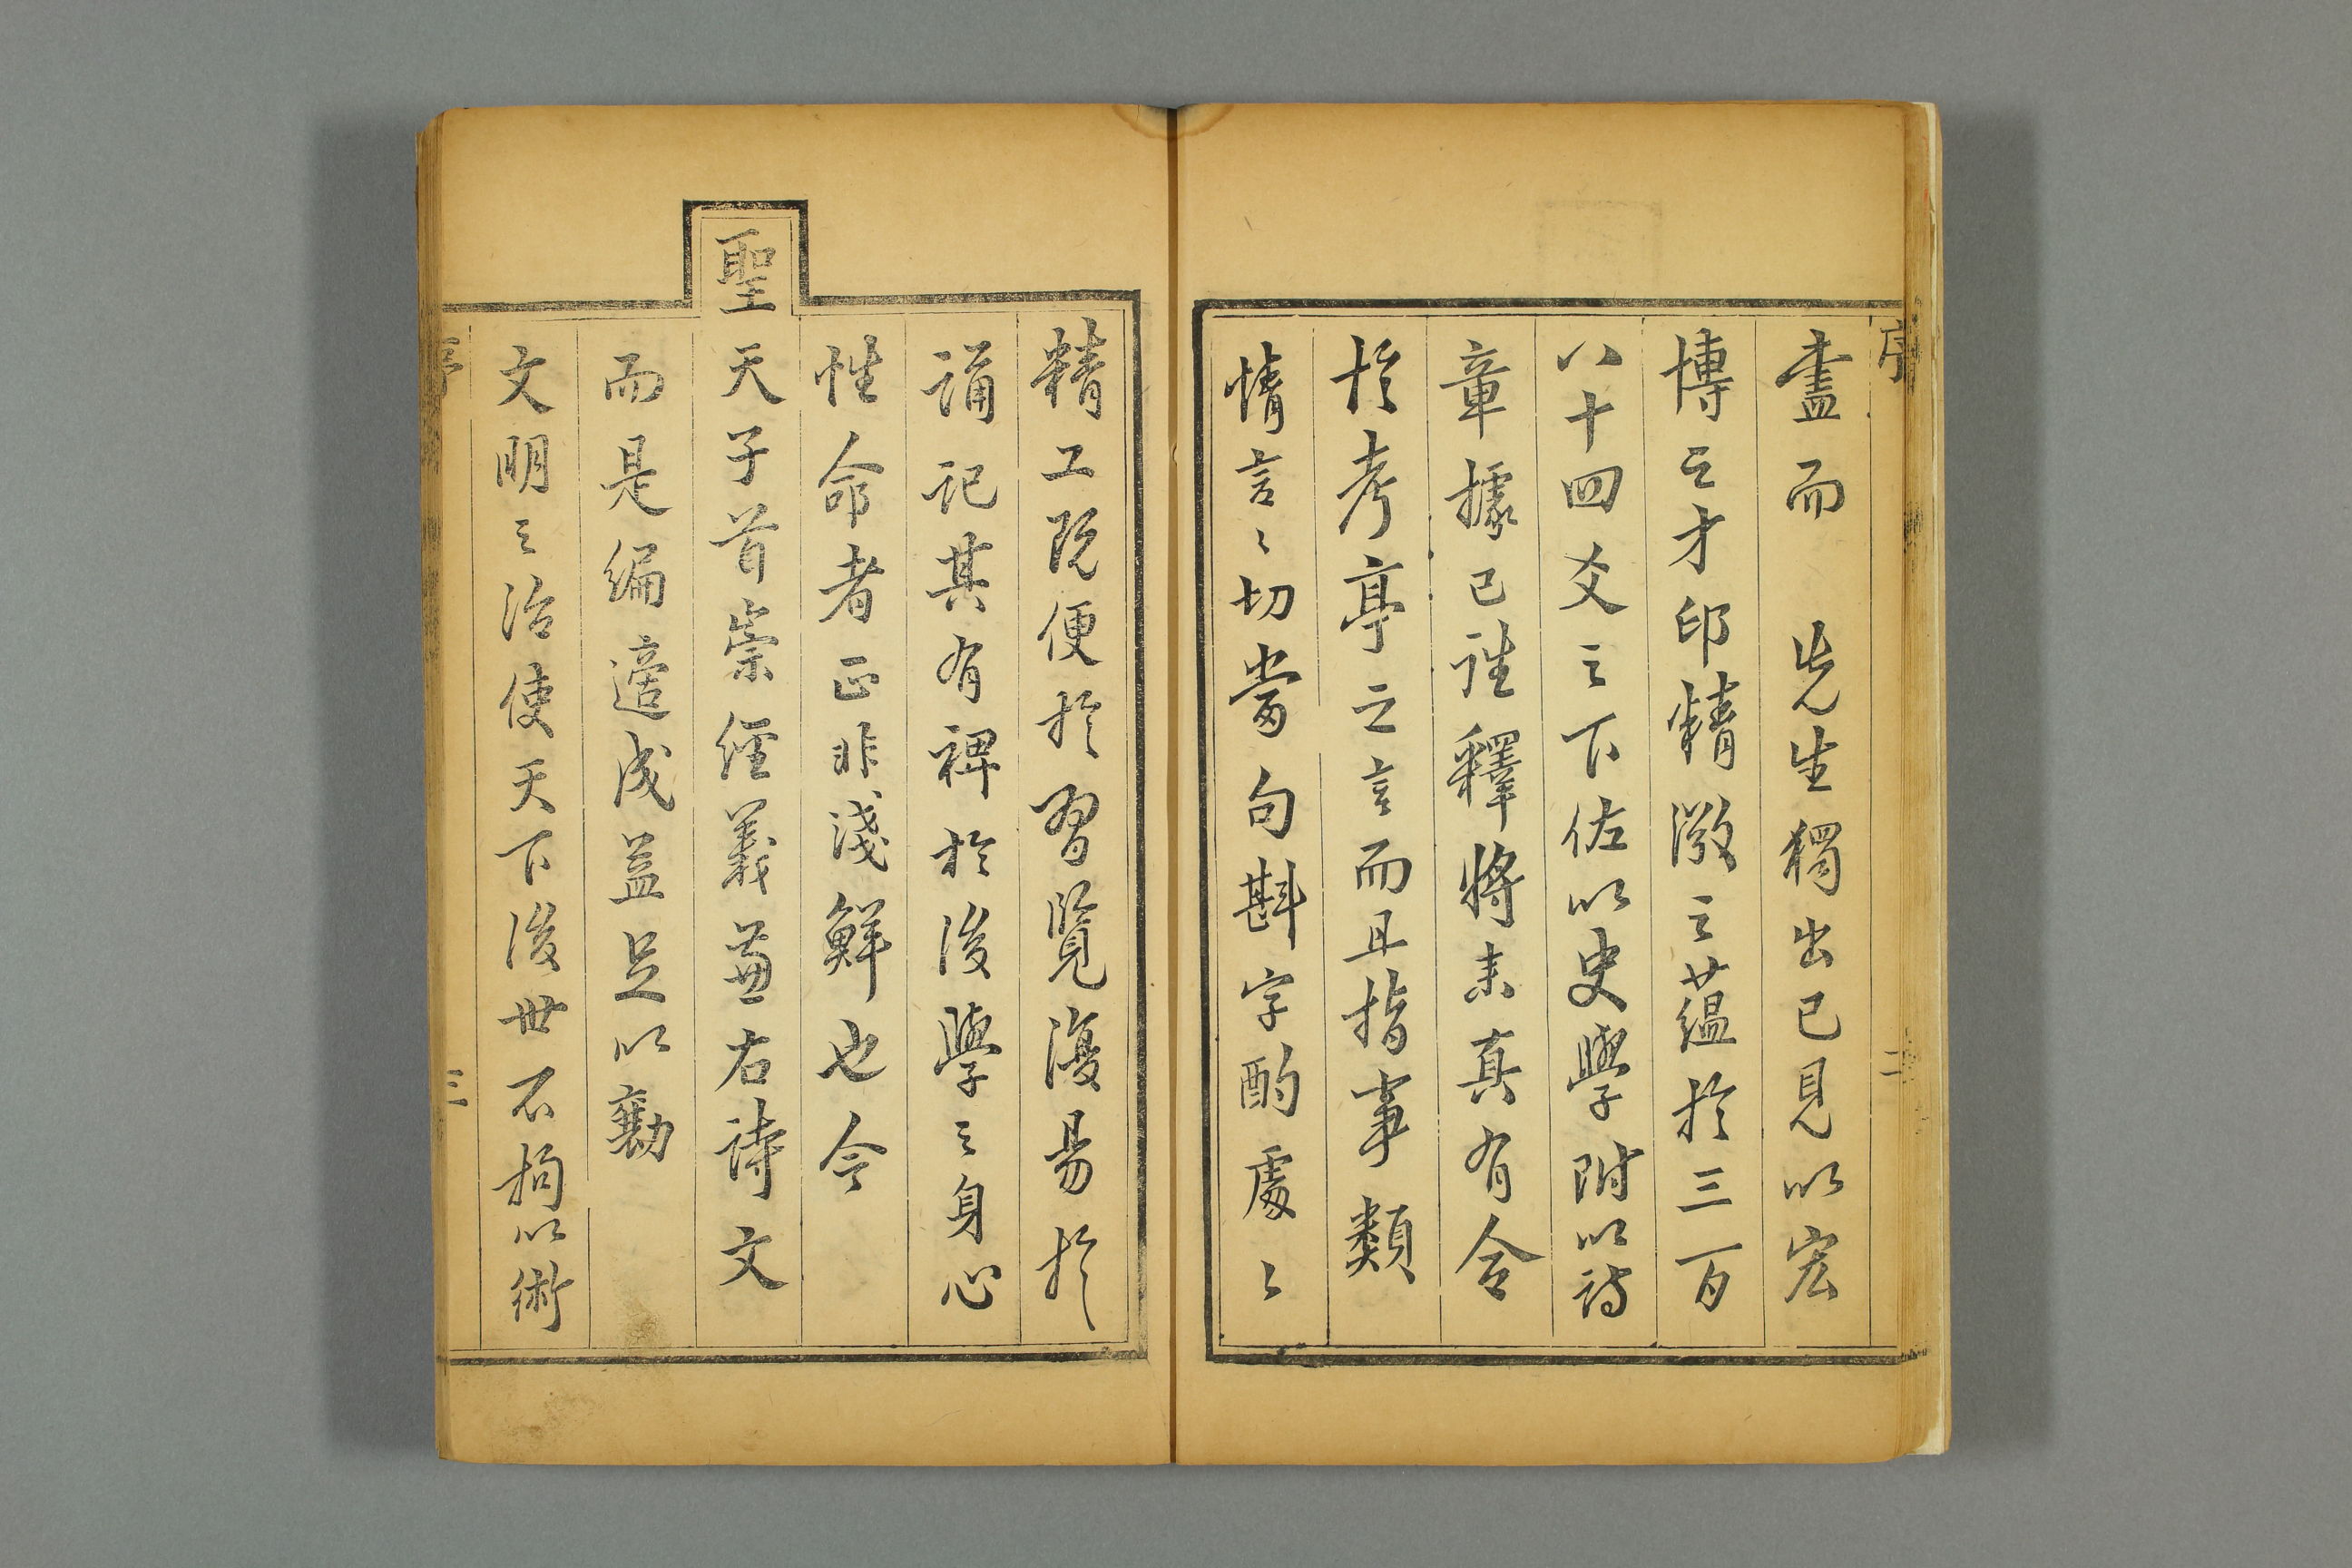 序
二
盡而 先生獨出已見以宏
博之才印精微之蘊於三百
八十四爻之下佐以史學附以詩
章據已詮釋將未真有合
於考亭之言而且指事類
情言〻切當句斟字酌處〻
精工既便於習覽復易於
誦記其有裨於後學之身心
性命者正非淺鮮也今
聖天子首崇經義兼右詩文
而是編適成益足以勷
文明之治使天下後世不拘以術
序
三